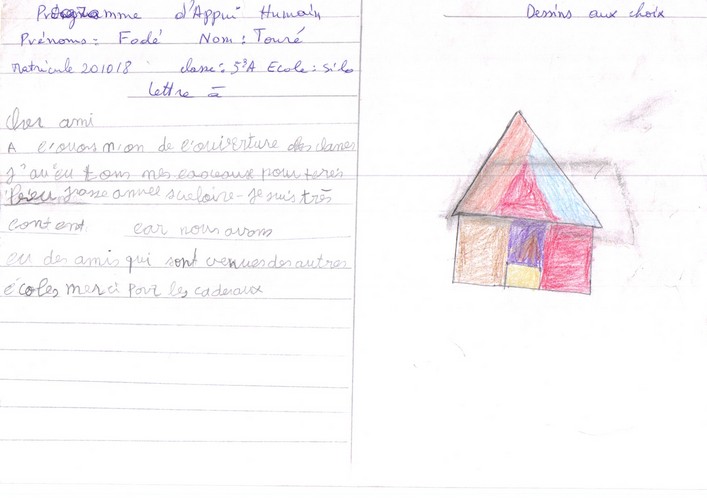 Programme d'Appui Humain
Prénoms : Fodé Nom : Touré
Matricule 201018 classe : 5ªA Ecole : silo
lettre à
cher ami
A l'ouverture des classes
j'ai eu tous mes cadeaux pour
année scolaire - je suis très
content car nous avons
eu des amis qui sont venues des autres
écoles merci pour les cadeaux
Dessins aux choix